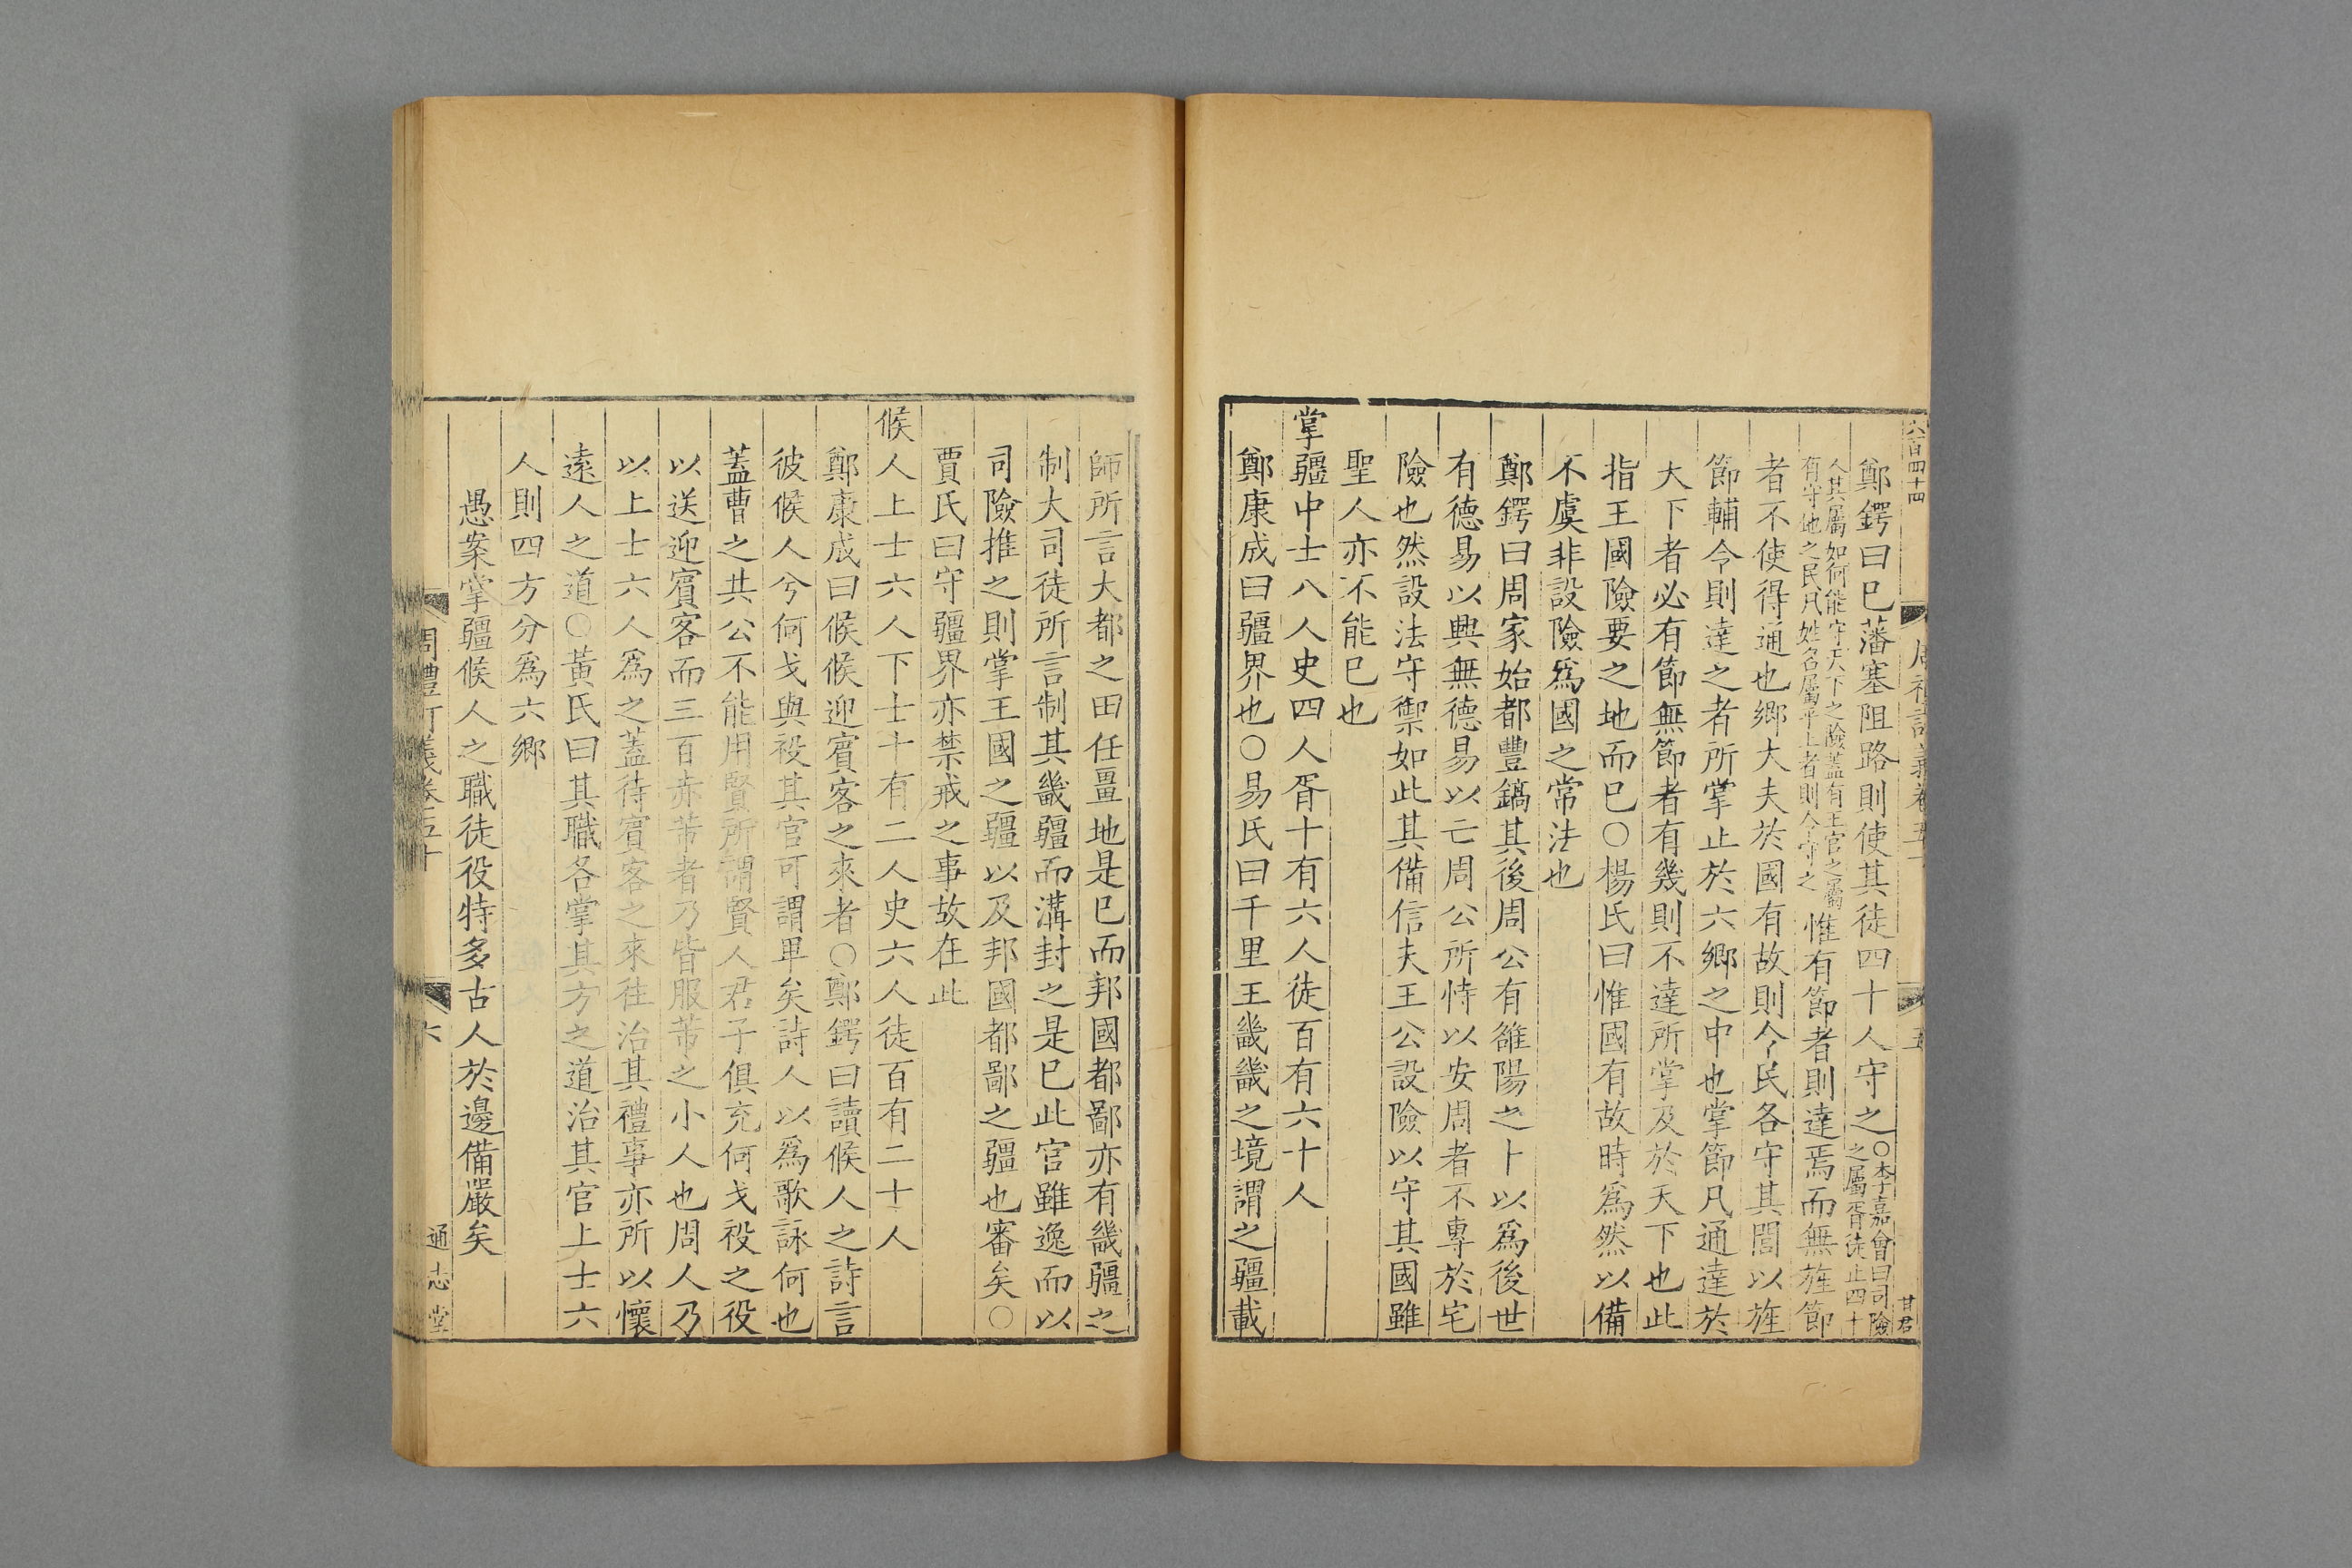 六百四十四
五
甘君
鄭鍔曰巳藩塞阻路則使其徒四十人守之○李嘉會曰司險之屬胥徒止四十
人其屬如何能守天下之險蓋有王官之屬有守地之民凡姓名屬乎上者則令守之惟有節者則達焉而無旌節
者不使得通也鄉大夫於國有故則令民各守其閭以旌
節輔令則達之者所掌止於六鄉之中也掌節凡通達於
大下者必有節無節者有幾則不達所掌及於天下也此
指王國險要之地而巳○楊氏曰惟國有故時爲然以備
不虞非設險爲國之常法也
鄭鍔曰周家始都豐鎬其後周公有雒陽之卜以爲後世
有德易以興無德易以亡周公所恃以安周者不專於宅
險也然設法守禦如此其備信夫王公設險以守其國雖
聖人亦不能巳也
掌疆中士八人史四人胥十有六人徒百有六十人
鄭康成曰疆界也○易氏曰千里王畿畿之境謂之疆載
師所言大都之田任畺地是巳而邦國都鄙亦有畿疆之
制大司徒所言制其畿疆而溝封之是巳此官雖逸而以
司險推之則掌王國之疆以及邦國都鄙之疆也審矣○
賈氏曰守疆界亦禁戒之事故在此
候人上士六人下士十有二人史六人徒百有二十人
鄭康成曰候候迎賓客之來者○鄭鍔曰讀候人之詩言
彼候人兮何戈與祋其官可謂卑矣詩人以爲歌詠何也
蓋曹之共公不能用賢所謂賢人君子俱充何戈祋之役
以送迎賓客而三百赤芾者乃皆服芾之小人也周人乃
以上士六人爲之蓋待賓客之來往治其禮事亦所以懷
遠人之道○黃氏曰其職各掌其方之道治其官上士六
人則四方分爲六鄉
愚案掌疆候人之職徒役特多古人於邊備嚴矣
周禮訂義卷五十
六
通志堂